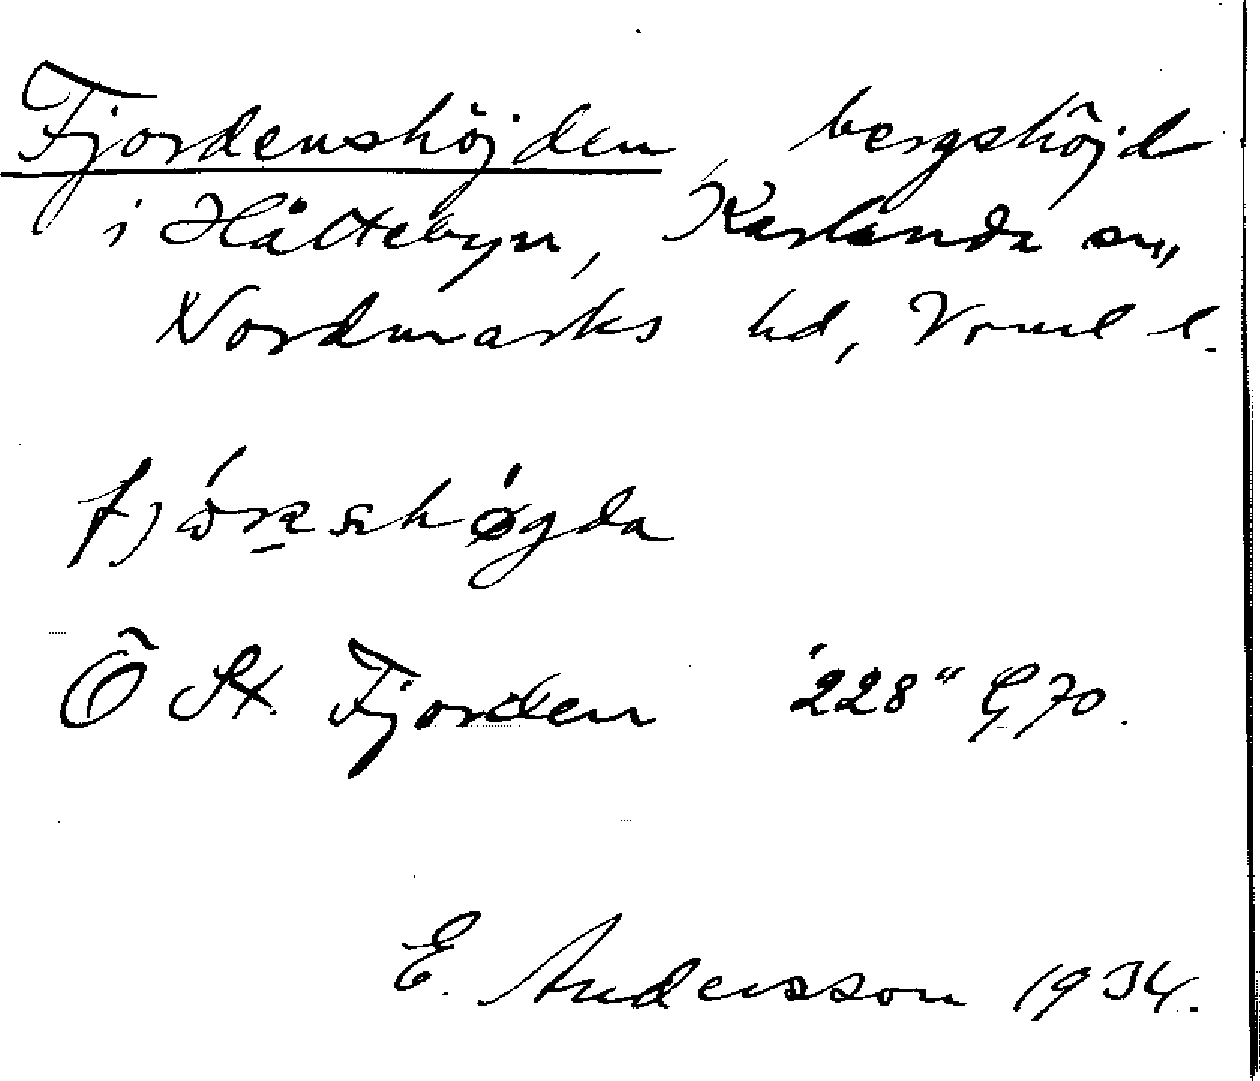 Fjordenshöjden, bergshöjd
i Håltebyn, Karlanda sn,
Nordmarks hd, Vrml l.
Ö St. Fjorden 228" G70.
E. Andersson 1934.